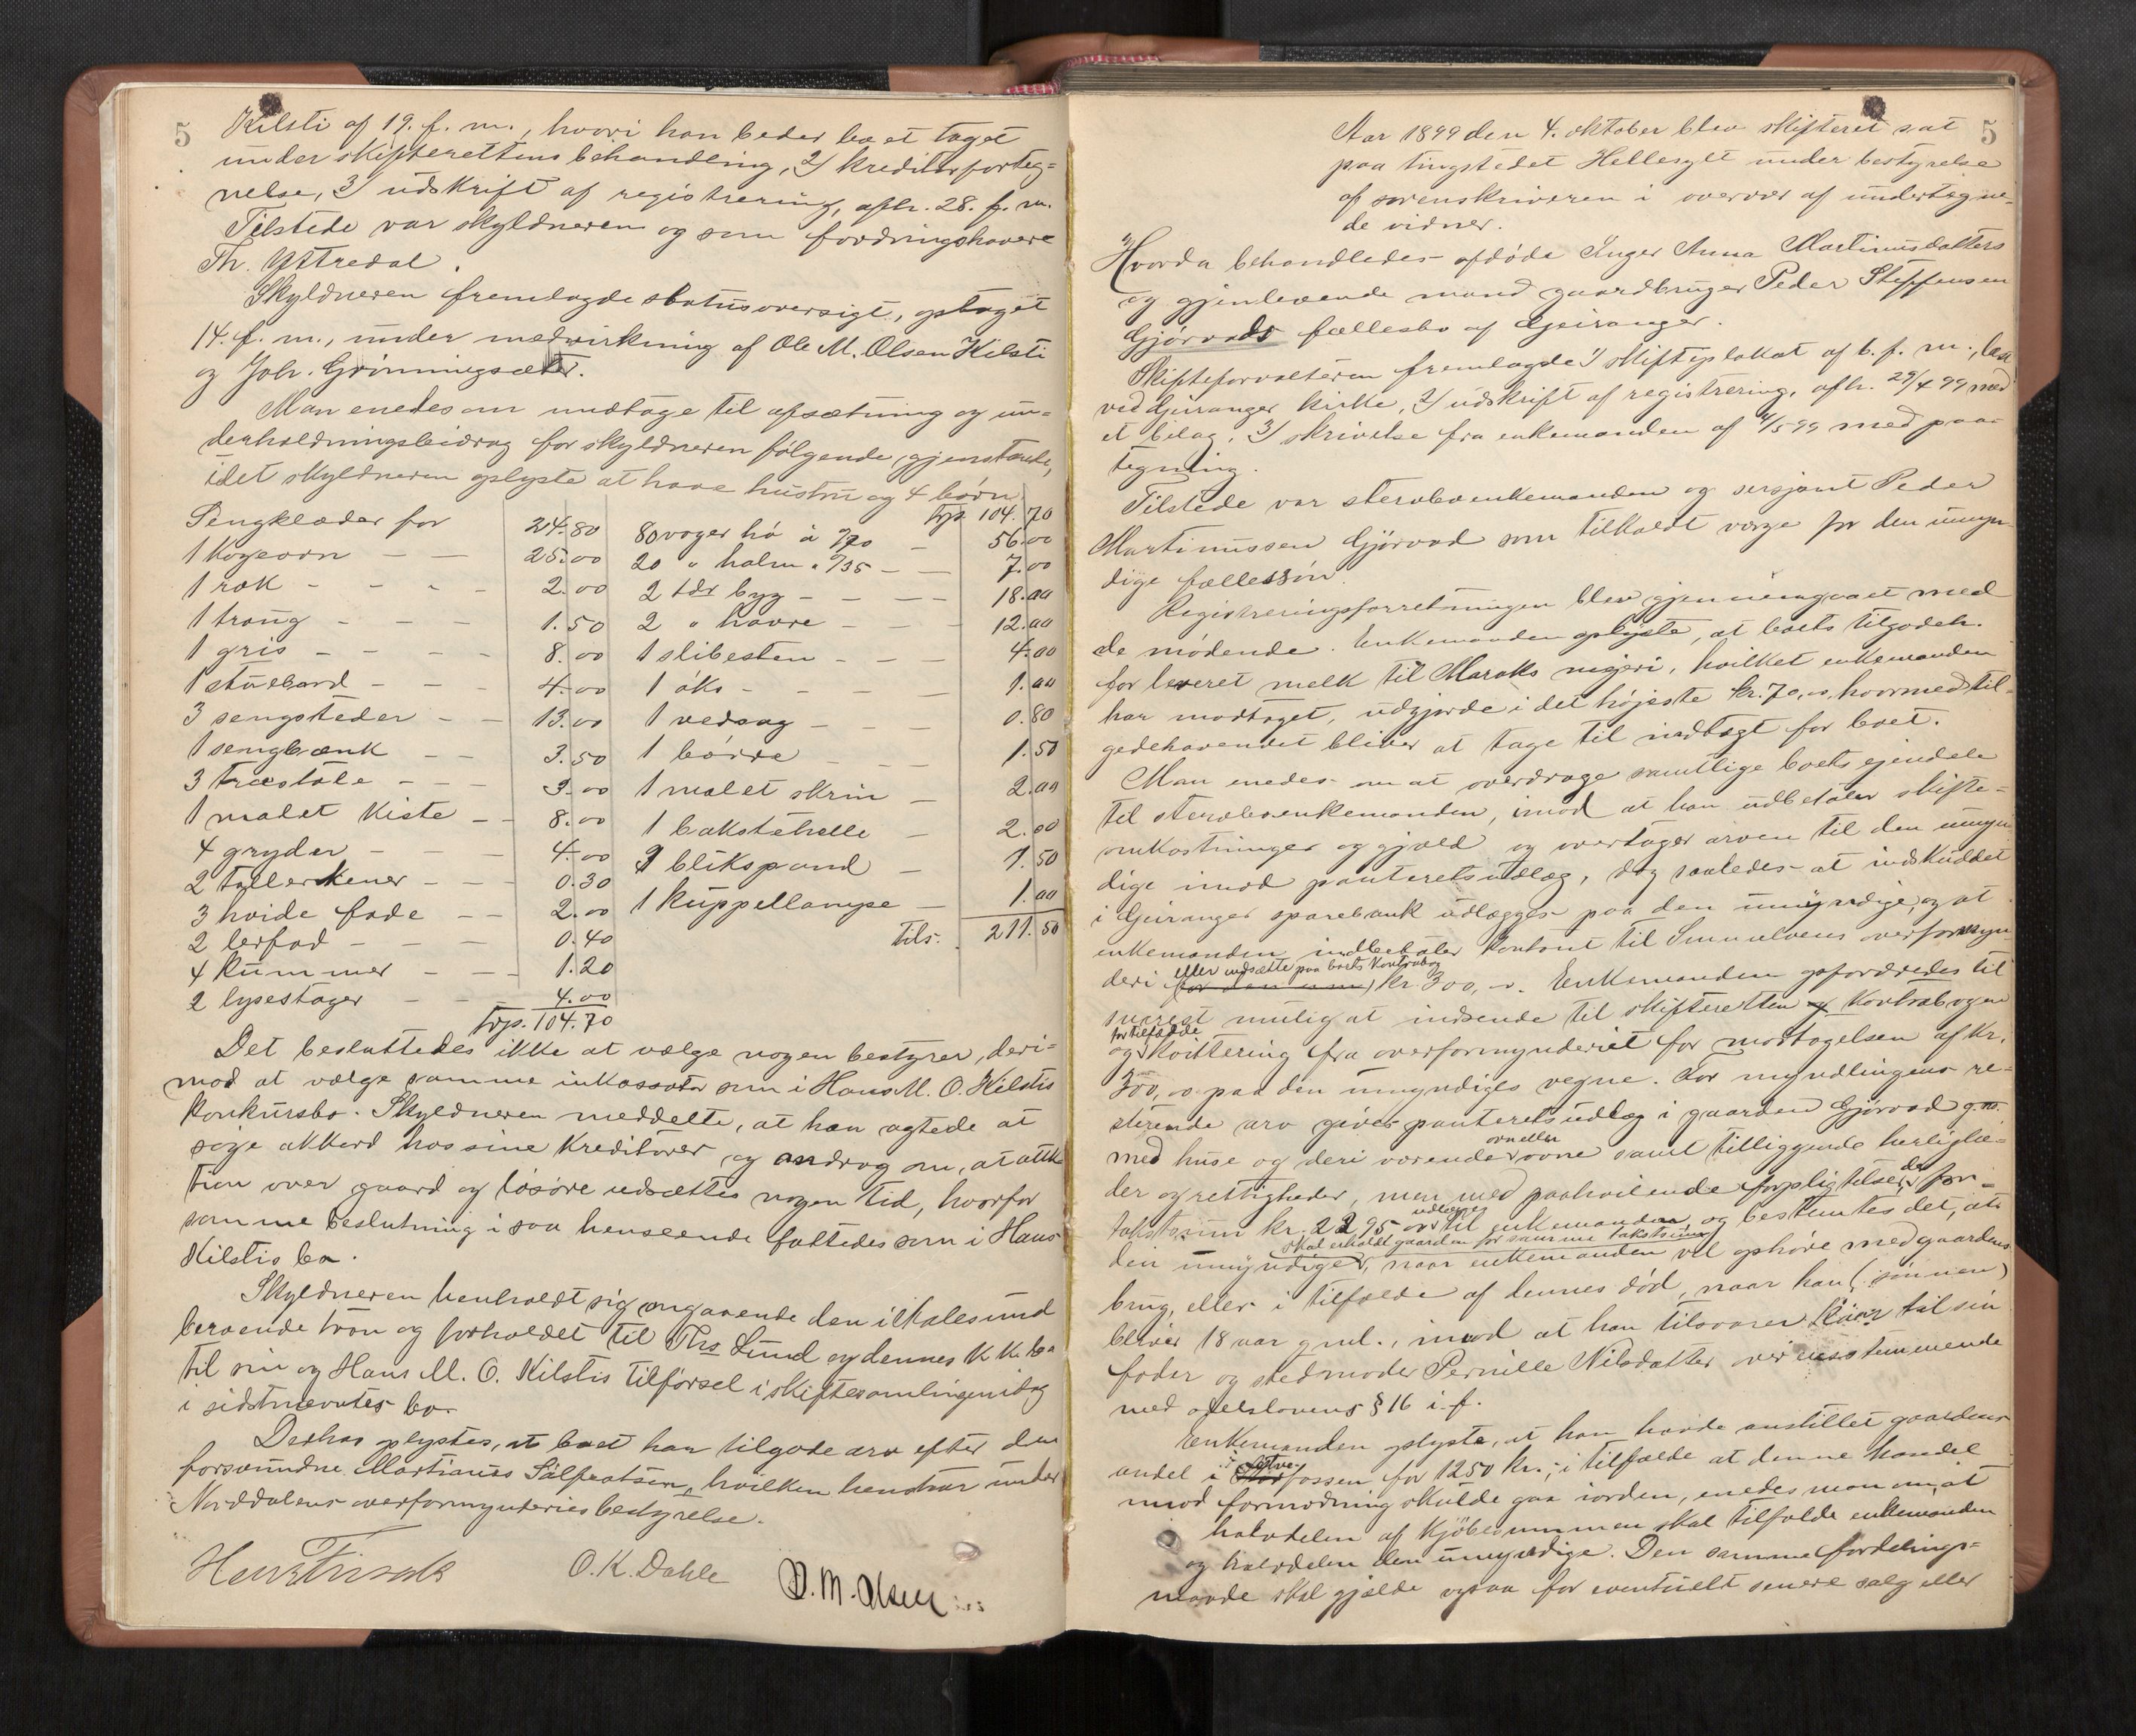 5
Kilsti af 19. f. m., hvori han beder boet taget
under skifterettens behandling, 2) kreditorforteg-
nelse, 3) udskrift af registrering, afh. 28. f. m.
Tilstede var skyldneren og som fordringshavere
Th. Ystredal.
Skyldneren fremlagde statusoversigt, optaget
14. f. m., under medvirkning af Ole M. Olsen Kilsti
og Joh. Grönningsæter.
Man enedes om undtage til afsætning og un-
derholdningsbidrag for skyldneren følgende gjenstande,
idet skyldneren oplyste at have hustru og 4 børn.
Sengklæder for 24.80
1 kogeovn — — 25.00
1 rok - - - 2.00
1 traug - - - 1.50
1 gris - - - - 8.00
1 stuebord - - - 4.00
3 sengsteder - - 13.00
1 sengbænk - - 3.50
3 træstole - - - 3.00
1 malet kiste - - 8.00
4 gryder - - - 4.00
2 tallerkener - - - 0.30
3 hvide fade - - 2.00
2 lerfad - - - 0.40
4 kummer - - - 1.20
2 lysestager - - 4.00
Trp. 104.70
Trp. 104.70
80 voger hø à 0/70 - 56.00
20 " halm " 0/35 - - 7.00
2 tdr byg - - - - 18.00
2 " havre - - - 12.00
1 slibesten - - - 4.00
1 øks - - - - 1.00
1 vedsag - - - 0.80
1 børre - - - 1.50
1 malet skrin - 2.00
1 bakstehelle - 2.00
3 blikspand - 1.50
1 kuppellampe - 1.00
Tils. 211.50
Det besluttedes ikke at vælge nogen bestyrer, deri-
mod at vælge samme inkassator som i Hans M. O. Kilstis
konkursbo. Skyldneren meddelte, at han agtede at
søge akkord hos sine kreditorer, og androg om, at auk-
tion over gaard og løsøre udsættes nogen tid, hvorfor
samme beslutning i saa henseende fattedes som i Hans
Kilstis bo.
Skyldneren henholdt sig angaaende den i Aalesund
beroende tran og forholdet til Ths Lund og dennes K. K. bo
til sin og Hans M. O. Kilstis tilførsel i skiftesamlingen idag
i sidstnævntes bo.
Derhos oplystes, at boet har tilgode arv efter den
forsvundne Martinus Salfeatsen, hvilken henstaar under
Norddalens overformynderies bestyrelse.
O. K. Dahle O. M. Olsen
5
Aar 1899 den 4. oktober blev skifteret sat
paa tingstedet Hellesylt under bestyrelse
af sorenskriveren i overvær af undertegne-
de vidner.
Hvorda behandledes afdøde Inger Anna Martinusdatters
og gjenlevende mand gaardbruger Peder Steffensen
Gjørvads fællesbo af Geiranger.
Skifteforvalteren fremlagde 1) skifteplakat af 6. f. m., læst
ved Geiranger kirke, 2) udskrift af registrering, afh. 29/4 99 med
et bilag, 3) skrivelse fra enkemanden af 4/5 99 med paa-
tegning.
Tilstede var sterbboenkemanden og sersjant Peder
Martinussen Gjørvad som tilkaldt værge for den umyn-
dige fællessøn.
Registreringsforretningen blev gjennemgaaet med
de mødende. Enkemanden oplyste, at boets tilgodeh.
for leveret melk til Maraks meieri, hvilket enkemanden
har modtaget, udgjorde i det højeste kr. 70,00, hvormed til-
godehavendet bliver at tage til indtægt for boet.
Man enedes om at overdrage samtlige boets ejendele
til sterbboenkemanden, imod at han udbetaler skifte-
omkostninger og gjæld og overtager arven til den umyn-
dige imod panteretsudlæg, dog saaledes at indskuddet
i Geiranger sparebank udlægges paa den umyndige, og at
enkemanden indbetaler kontant til Sunnelvens overformyn-
eller indsætte paa boets kontrabog
deri (for den um.) kr. 300,00. Enkemanden opfordredes til
snarest mulig at indsende til skifteretten kontrabogen
for tilfælde
og kvittering fra overformynderiet for modtagelsen af kr.
300,00 paa den umyndiges vegne. For myndlingens re-
sterende arv gives panteretsudlæg i gaarden Gjørvad g. no.
med huse og deri værende ovne samt tilliggende herlighe-
der og rettigheder, men med paahvilende forpligtelser, der for
udlægges
takstsum kr. 2295,00 til enkemanden, og bestemtes det, at
skal erholde gaarden for samme takstsum
den umyndige, naar enkemanden vil ophøre med gaardens
brug, eller i tilfælde af dennes død, naar han (sønnen)
bliver 18 aar gml., imod at han tilsvarer kaar til sin
fader og stedmoder Pernille Nilsdatter overensstemmende
med odelslovens § 16 i. f.
Enkemanden oplyste, at han havde anstillet gaardens
andel i fossen for 1250 kr.; i tilfælde at denne handel
imod formodning skulde gaa iorden, enedes man om, at
halvdelen af kjøbesummen skal tilfalde enkemanden
og halvdelen den umyndige. Den samme fordelings-
maade skal gjælde ogsaa for eventuelt senere salg eller